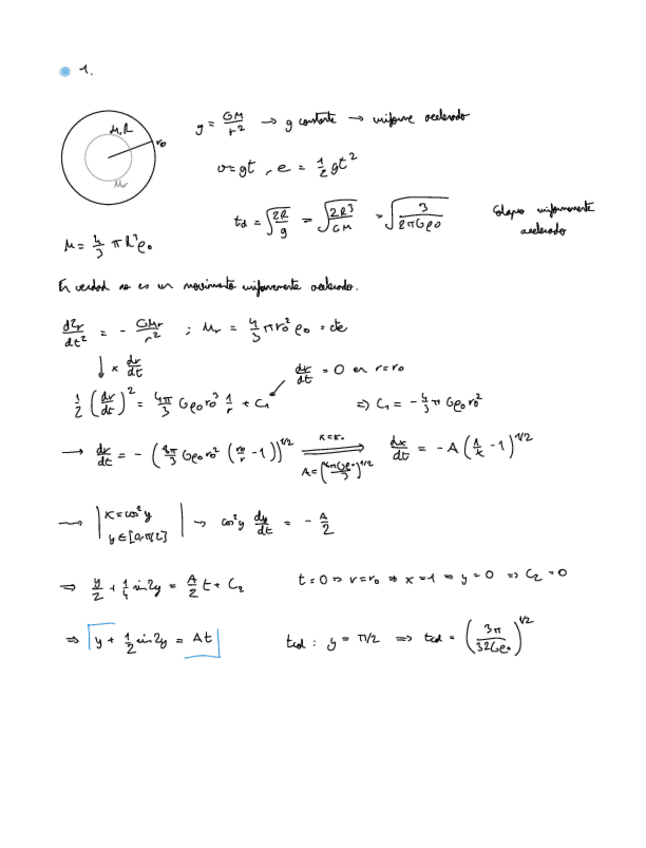 1.
M, R
r₀
Mr
g = GM/r² → g constante → uniforme acelerado
v = gt , e = 1/2 gt²
td = √(2R/g) = √(2R³/GM) = √(3/2πGρ₀) Colapso uniformemente acelerado
M = 4/3 π R³ρ₀
En verdad no es un movimiento uniformemente acelerado.
d²r/dt² = - GMr/r² ; Mr = 4/3 π r₀³ ρ₀ = cte
↓ × dr/dt
dr/dt = 0 en r=r₀
1/2 (dr/dt)² = 4π/3 Gρ₀r₀³ 1/r + C₁ ⇒ C₁ = - 4/3 π Gρ₀r₀²
→ dr/dt = - ( Gρ₀r₀² (r₀/r - 1))^1/2 ⇒ dx/dt = -A (1/x - 1)^1/2
→ | x = cos²y
y ∈ [0, π/2] | → cos²y dy/dt = A/2
⇒ y/2 + 1/4 sin2y = A/2 t + C₂ t=0 ⇒ r=r₀ ⇒ x=1 ⇒ y=0 ⇒ C₂=0
⇒ y + 1/2 sin2y = At tcol : y = π/2 ⇒ tcol = (3π/32Gρ₀)^1/2